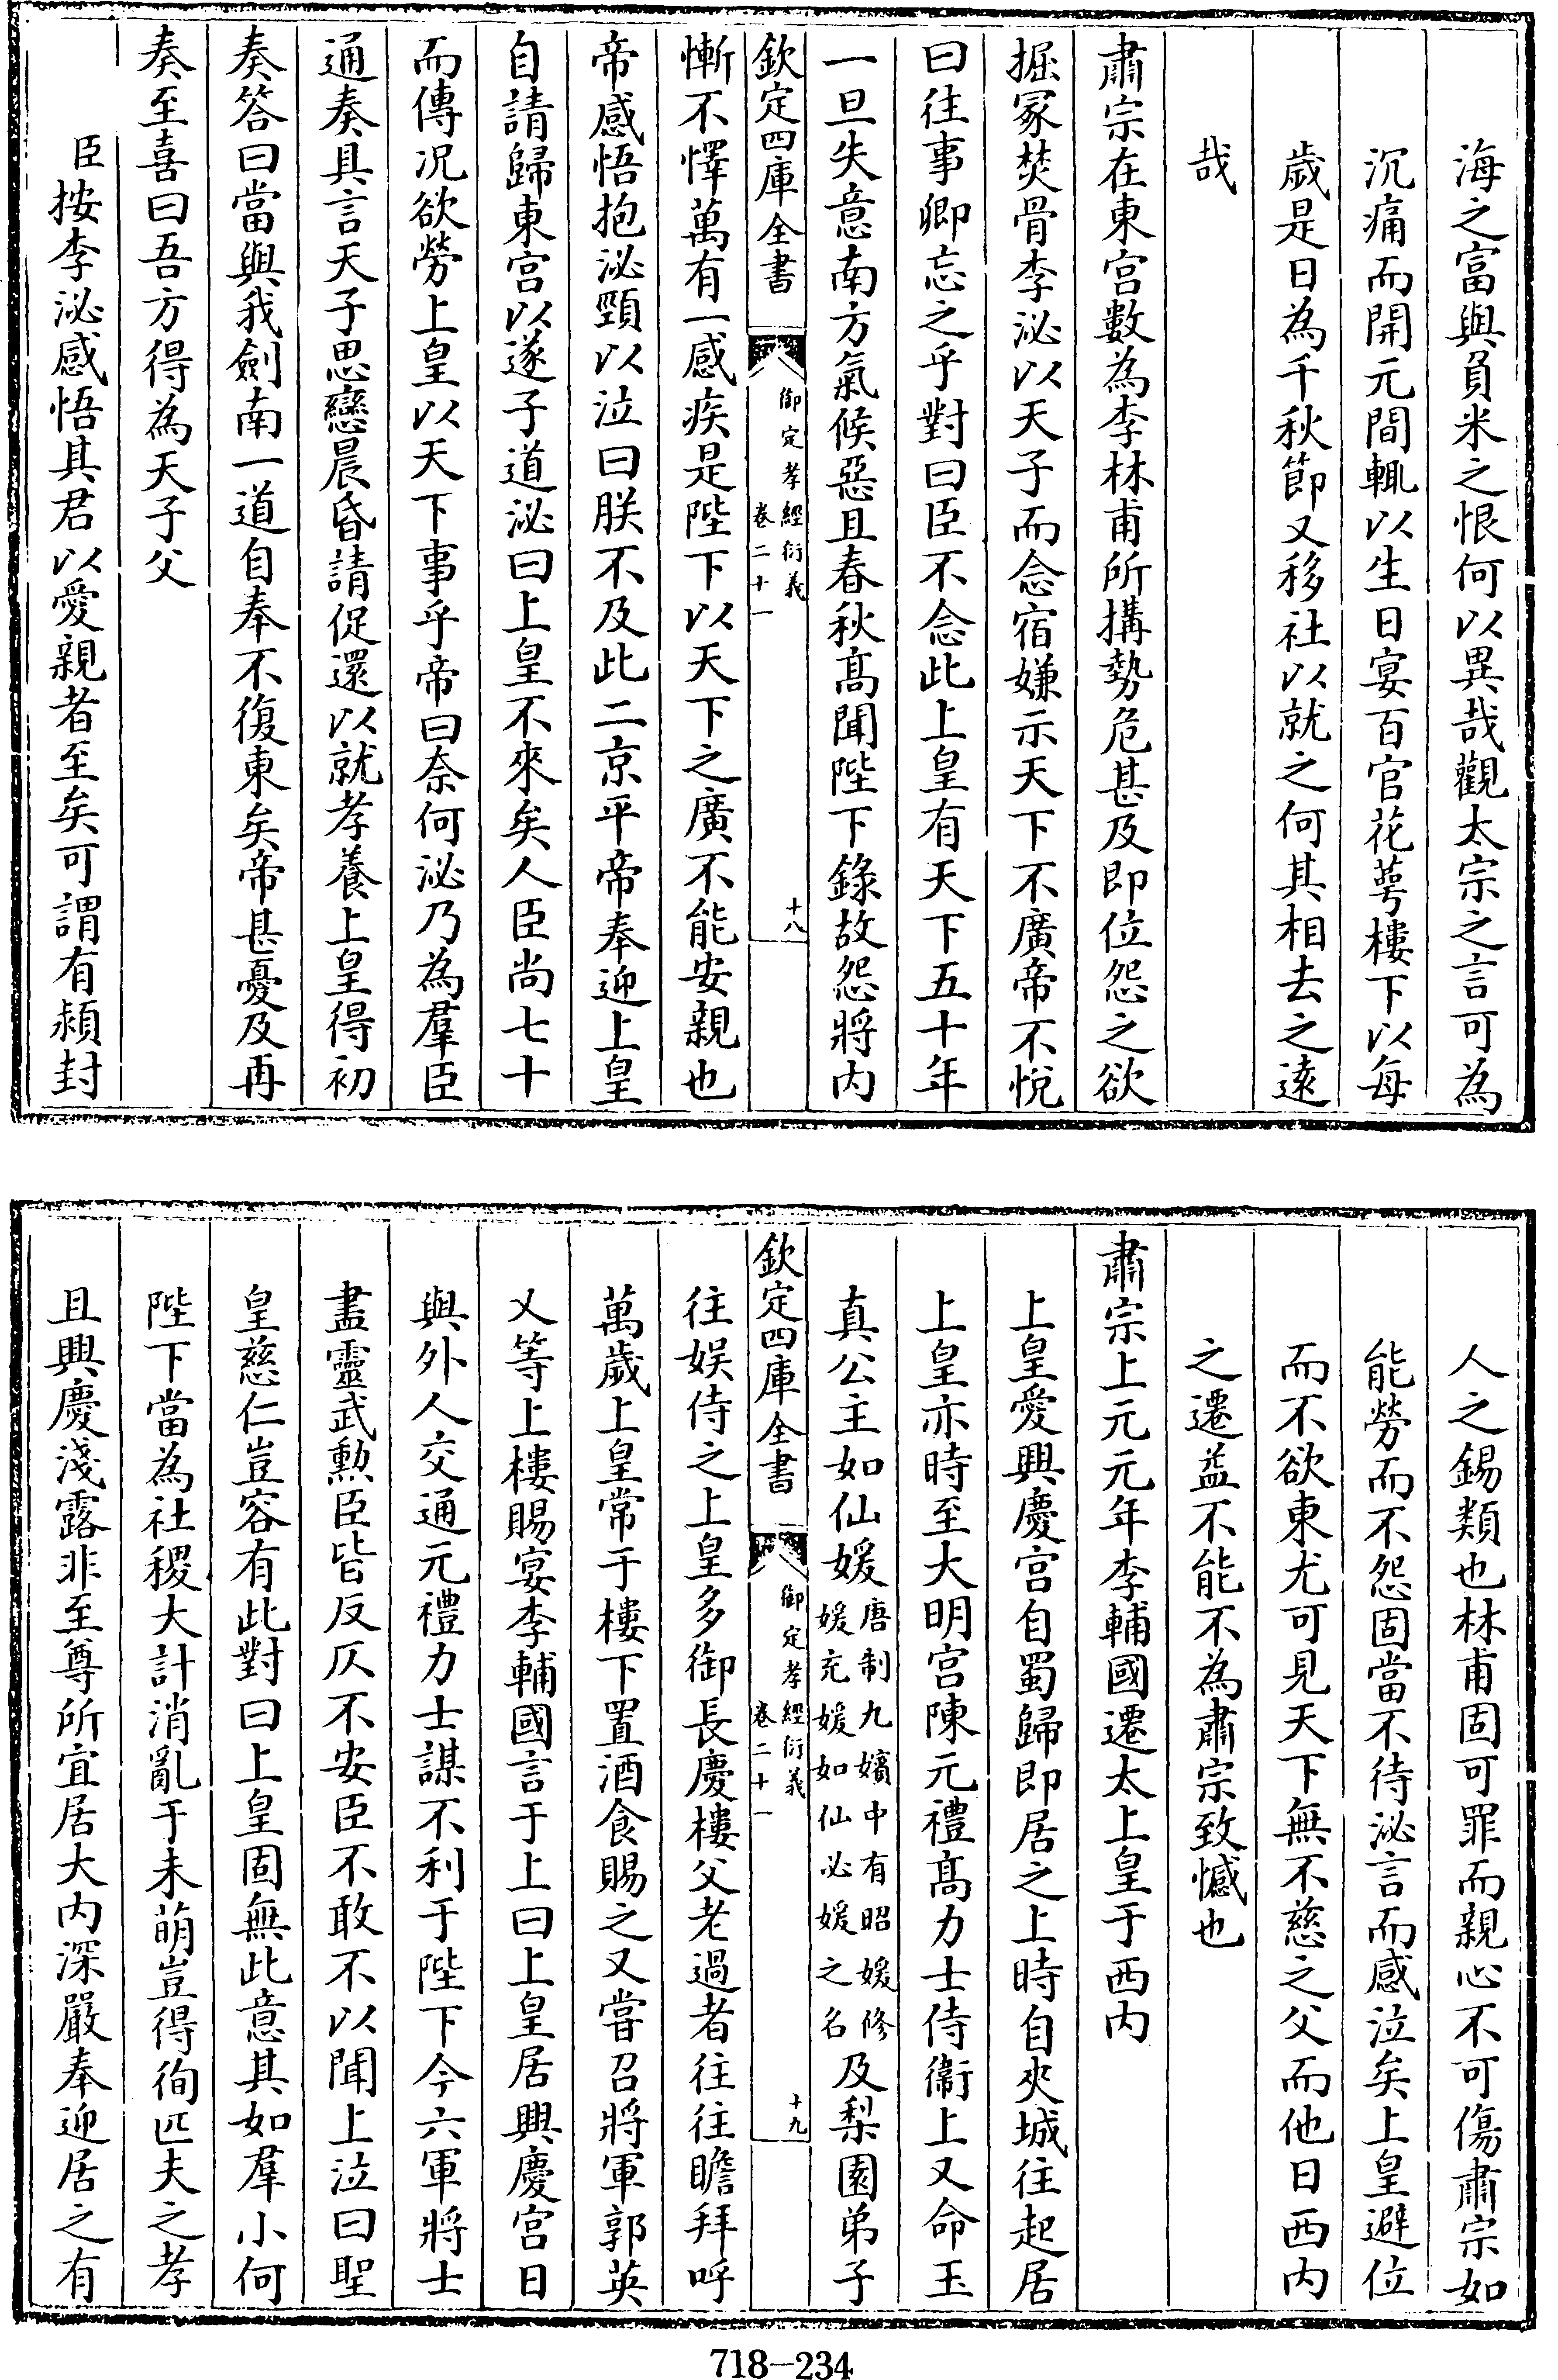 海之富與負米之恨何以異哉觀太宗之言可為
沉痛而開元間輒以生日宴百官花萼樓下以每
歲是日為千秋節又移社以就之何其相去之遠
哉
肅宗在東宮數為李林甫所搆勢危甚及即位怨之欲
掘冢焚骨李泌以天子而念宿嫌示天下不廣帝不悅
曰往事卿忘之乎對曰臣不念此上皇有天下五十年
一旦失意南方氣候惡且春秋髙聞陛下錄故怨將内
欽定四庫全書
御定孝經衍義
卷二十一
十八
慚不懌萬有一感疾是陛下以天下之廣不能安親也
帝感悟抱泌頸以泣曰朕不及此二京平帝奉迎上皇
自請歸東宮以遂子道泌曰上皇不來矣人臣尚七十
而傳况欲勞上皇以天下事乎帝曰奈何泌乃為羣臣
通奏具言天子思戀晨昏請促還以就孝養上皇得初
奏答曰當與我劍南一道自奉不復東矣帝甚憂及再
奏至喜曰吾方得為天子父
臣按李泌感悟其君以愛親者至矣可謂有潁封
人之錫類也林甫固可罪而親心不可傷肅宗如
能勞而不怨固當不待泌言而感泣矣上皇避位
而不欲東尤可見天下無不慈之父而他日西内
之遷益不能不為肅宗致憾也
肅宗上元元年李輔國遷太上皇于西内
上皇愛興慶宮自蜀歸即居之上時自夾城往起居
上皇亦時至大明宮陳元禮髙力士侍衞上又命玉
真公主如仙媛唐制九嬪中有昭媛修媛充媛如仙必媛之名及梨園弟子
欽定四庫全書
御定孝經衍義
卷二十一
十九
往娱侍之上皇多御長慶樓父老過者往往瞻拜呼
萬歲上皇常于樓下置酒食賜之又嘗召將軍郭英
乂等上樓賜宴李輔國言于上曰上皇居興慶宮日
與外人交通元禮力士謀不利于陛下今六軍將士
盡靈武勲臣皆反仄不安臣不敢不以聞上泣曰聖
皇慈仁豈容有此對曰上皇固無此意其如羣小何
陛下當為社稷大計消亂于未萌豈得徇匹夫之孝
且興慶淺露非至尊所宜居大内深嚴奉迎居之有
718—234